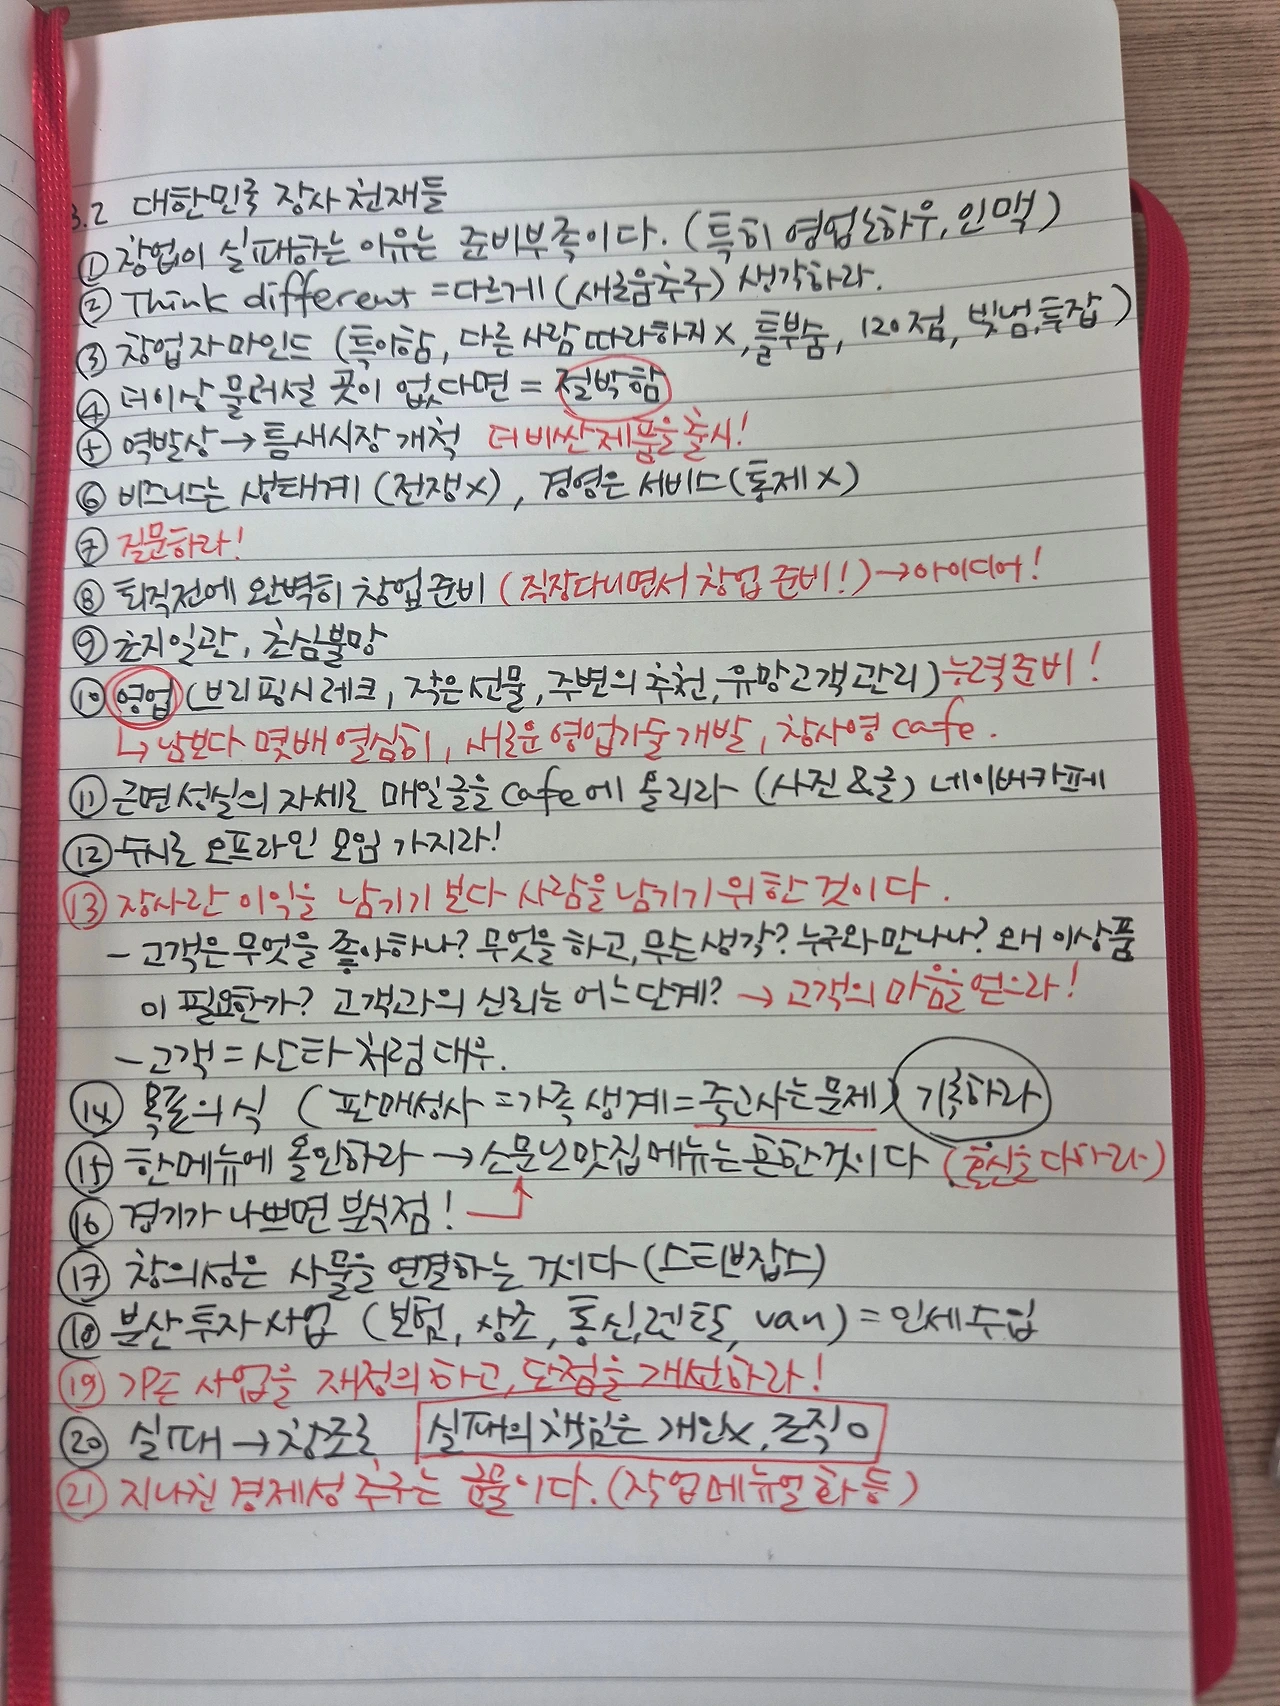 3.2 대한민국 장사 천재들
① 창업이 실패하는 이유는 준비부족이다. (특히 영업노하우, 인맥)
② Think different = 다르게 (새로움추구) 생각하라.
③ 창업자마인드 (특이함, 다른 사람 따라하지 X, 틀부숨, 120점, 빚냄, 투잡)
④ 더이상 물러설 곳이 없다면 = 절박함
⑤ 역발상 → 틈새시장 개척 더 비싼 제품을 출시!
⑥ 비즈니스는 생태계 (전쟁X), 경영은 서비스 (통제 X)
⑦ 질문하라!
⑧ 퇴직전에 완벽히 창업준비 (직장다니면서 창업 준비!) → 아이디어!
⑨ 초지일관, 초심불망
⑩ 영업 (브리핑시레크, 작은 선물, 주변의 추천, 유망고객 관리) 능력준비!
↳ 남보다 몇배 열심히, 새로운 영업기술 개발, 창사영 cafe.
⑪ 근면성실의 자세로 매일 글을 cafe에 올리라 (사진&글) 네이버카페
⑫ 수시로 오프라인 모임 가지라!
⑬ 장사란 이익을 남기기 보다 사람을 남기기 위한 것이다.
- 고객은 무엇을 좋아하나? 무엇을 하고, 무슨 생각? 누구와 만나나? 왜 이상품
이 필요한가? 고객과의 신뢰는 어느단계? → 고객의 마음을 얻으라!
- 고객 = 산타처럼 대우.
⑭ 목표의식 (판매성사 = 가족 생계 = 죽고사는 문제) 기록하라
⑮ 한메뉴에 올인하라 → 소문난 맛집 메뉴는 흔한것이다 (혼신을 다하라)
⑯ 경기가 나쁘면 분식점!
⑰ 창의성은 사물을 연결하는 것이다 (스티브잡스)
⑱ 분산 투자 사업 (보험, 상조, 통신, 렌탈, van) = 인세수입
⑲ 기존 사업을 재정의 하고, 단점을 개선하라!
⑳ 실패 → 창조로 실패의 책임은 개인X, 조직O
㉑ 지나친 경제성 추구는 꼼물이다. (작업메뉴얼화 등)